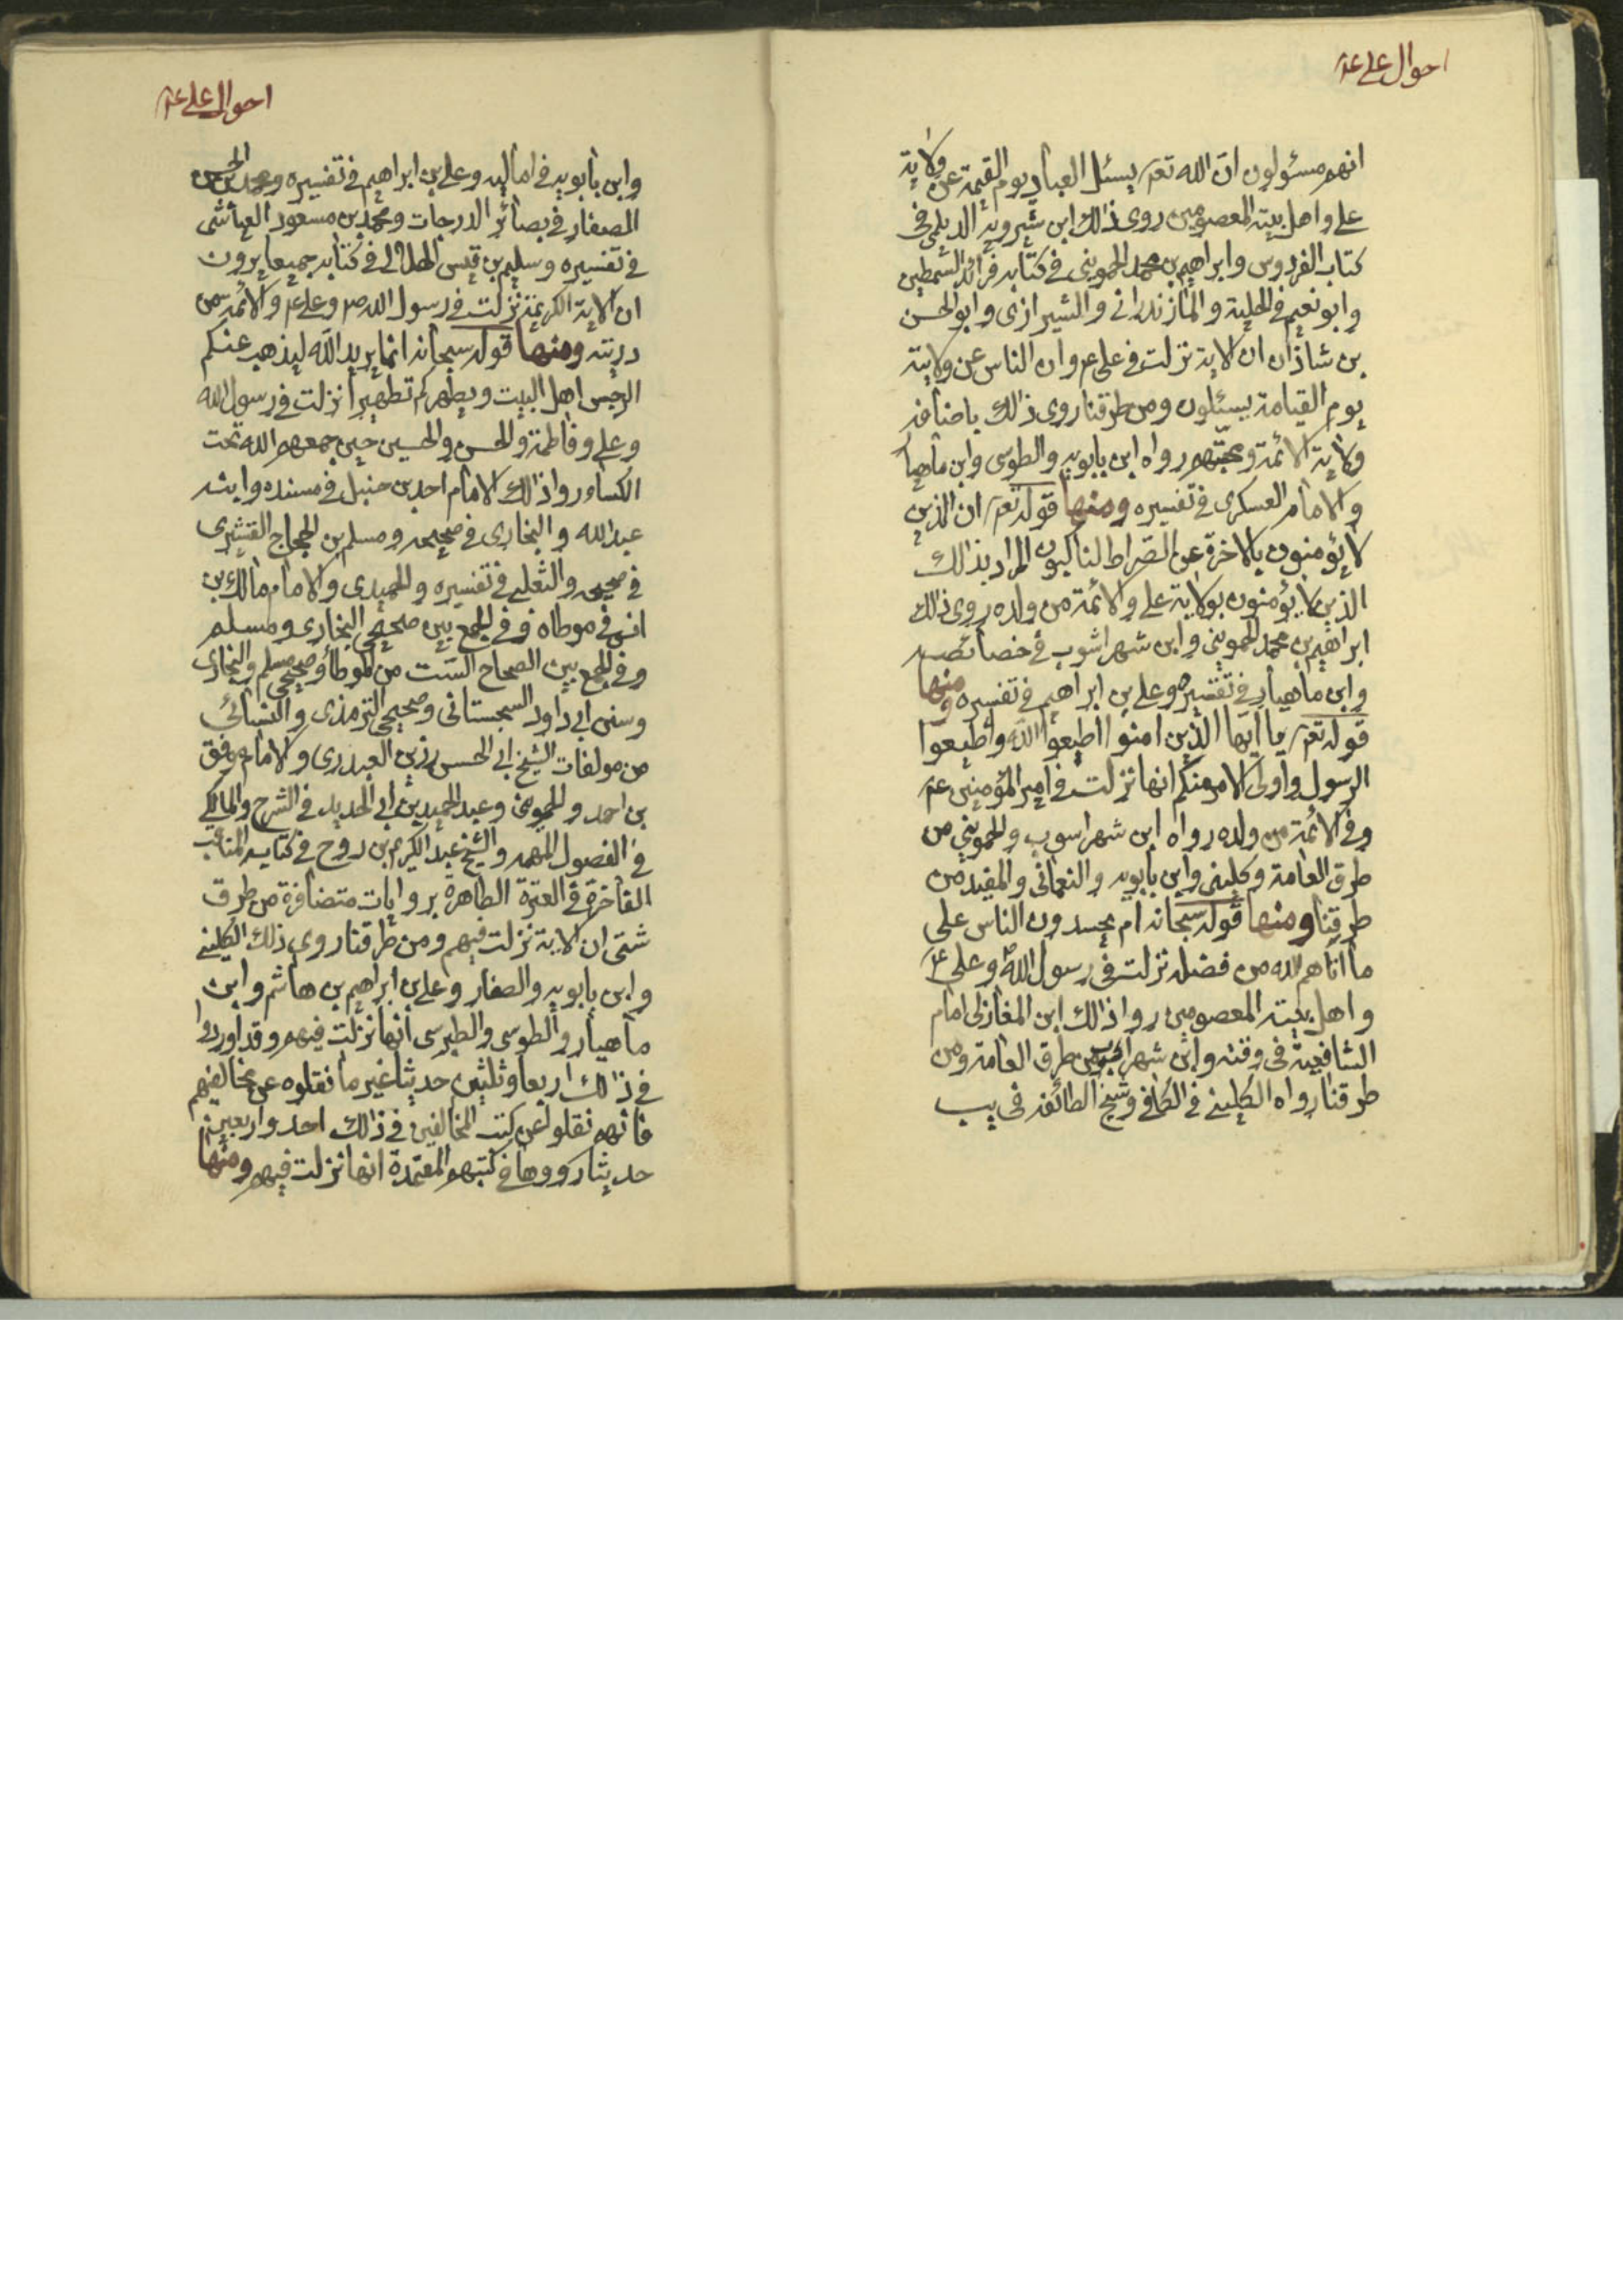 احوال علي عم
انهم مسئولون ان الله تعم يسئل العباد يوم القيمة عن ولاية
علي واهل بيته المعصومين روى ذالك ابن شيرويه الديلمي في
كتاب الفردوس وابراهيم بن محمد الحمويني في كتابه فرائد السمطين
وابو نعيم في الحلية والمازندراني والشيرازي وابو الحسن
بن شاذان ان الاية نزلت في علي عم وان الناس عن ولايته
يوم القيامة يسئلون ومن طرقنا روى ذالك باضافه
ولاية الائمة ومحبتهم رواه ابن بابويه والطوسي وابن ماهيا
والامام العسكري في تفسيره ومنها قوله تعم ان الذين
لا يؤمنون بالاخرة عن الصراط لناكبون المراد بذالك
الذين لا يؤمنون بولاية علي والائمة من ولده روى ذالك
ابراهيم بن محمد الحمويني وابن شهراشوب في خصائصه
وابن ماهيار في تفسيره وعلي بن ابراهيم في تفسيره ومنها
قوله تعم يا ايها الذين امنوا اطيعوا الله واطيعوا
الرسول واولي الامر منكم انها نزلت في امير المؤمنين عم
وفي الائمة من ولده رواه ابن شهراسوب والحمويني من
طرق العامة وكليني وابن بابويه والنعماني والمفيد من
طرقنا ومنها قوله سبحانه ام يحسدون الناس على
ما اتاهم الله من فضله نزلت في رسول الله ص وعلي عم
واهل بيته المعصومين رواذالك ابن المغازلي امام
الشافعية في وقته وابن شهراشوب من طرق العامة ومن
طرقنا رواه الكليني في الكافي وشيخ الطائفه في يب
احوال علي عم
وابن بابويه في اماليه وعلي بن ابراهيم في تفسيره ومحمد بن الحسن
الصفار في بصائر الدرجات ومحمد بن مسعود العياشي
في تفسيره وسليم بن قيس الهلالي في كتابه جميعا يروون
ان الاية الكريمة نزلت في رسول الله ص وعلي عم والائمة من
ذريته ومنها قوله سبحانه انما يريد الله ليذهب عنكم
الرجس اهل البيت ويطهركم تطهيرا نزلت في رسول الله
وعلي وفاطمة والحسن والحسين حين جمعهم الله تحت
الكساء رواذالك الامام احمد بن حنبل في مسنده وابنه
عبد الله والبخاري في صحيحه ومسلم بن الحجاج القشيري
في صحيحه والثعلبي في تفسيره والحميدي والامام مالك بن
انس في موطاه وفي الجمع بين صحيحي البخاري ومسلم
وفي الجمع بين الصحاح الست من الموطأ وصحيحي مسلم والبخاري
وسنن ابي داود السجستاني وصحيح الترمذي والنسائي
من مولفات الشيخ ابي الحسن رزين العبدري والامام موفق
بن احمد والحمويني وعبد الحميد بن ابي الحديد في الشرح والمالكي
في الفصول المهمه والشيخ عبد الكريم بن روح في كتابه المناقب
الفاخرة في العترة الطاهرة بروايات متضافرة من طرق
شتى ان الاية نزلت فيهم ومن طرقنا روى ذلك الكليني
وابن بابويه والصفار وعلي بن ابراهيم بن هاشم وابن
ماهيار والطوسي والطبرسي انها نزلت فيهم وقد اوردوا
في ذالك اربعا وثلثين حديثا غير ما نقلوه عن مخالفيهم
فانهم نقلوا عن كتب المخالفين في ذالك احد واربعين
حديثا رووها في كتبهم المعتمدة انها نزلت فيهم ومنها